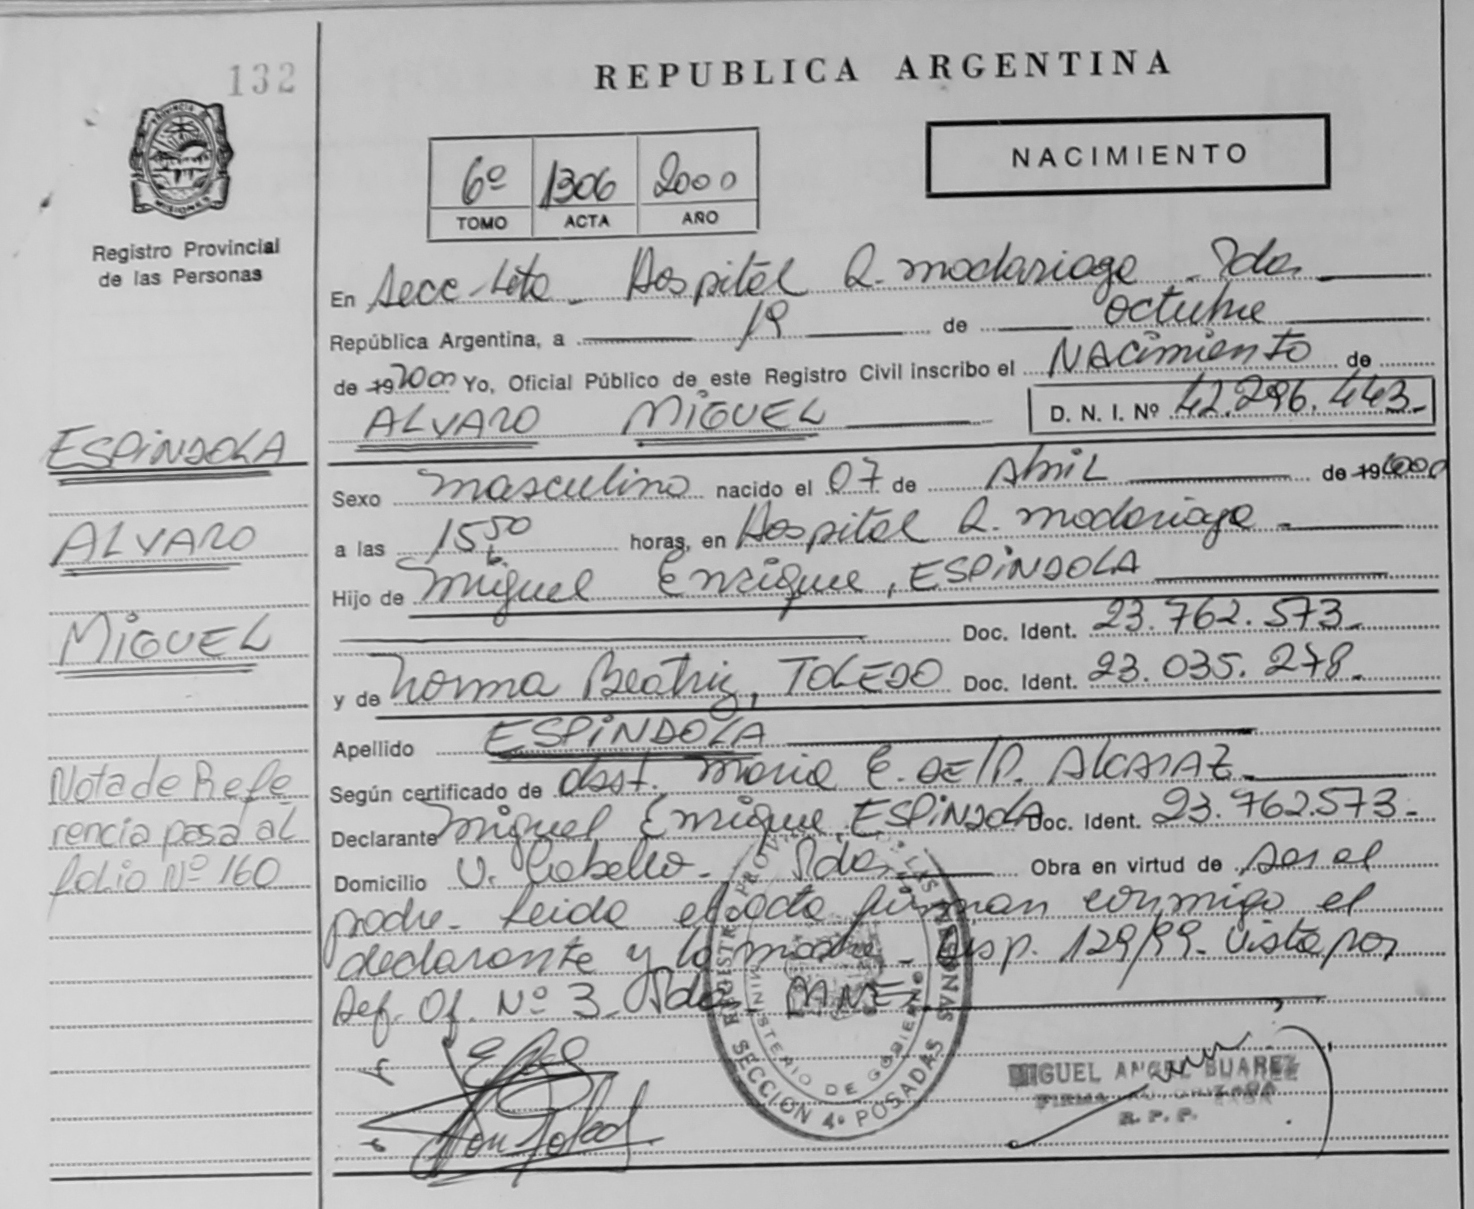 132
REPUBLICA ARGENTINA
PROVINCIA
MISIONES
NACIMIENTO
6º 1306 2000
TOMO ACTA AÑO
Registro Provincial
de las Personas
En Secc 4ta - Hospital R. Madariaga - Pdas
República Argentina, a 19 de octubre
de 19 2000 Yo, Oficial Público de este Registro Civil inscribo el NACimiento de
ALVARO MIGUEL D. N. I. Nº 42.296.443-
ESPINDOLA
ALVARO
MIGUEL
Sexo masculino nacido el 07 de Abril de 19 2000
a las 15,50 horas, en Hospital R. Madariaga -
Hijo de Miguel Enrique, ESPINDOLA
Doc. Ident. 23.762.573-
y de Norma Beatriz, TOLEDO Doc. Ident. 23.035.278-
Apellido ESPINDOLA
Según certificado de Obst. Maria E. DE/P. ALCARAZ
Declarante Miguel Enrique ESPINDOLA Doc. Ident. 23.762.573-
Domicilio V. Cabello - Pdas Obra en virtud de ser el
padre - Leida el acta firman conmigo el
declarante y la madre - Disp. 129/99 - Vista por
Def. Of. Nº 3 - Pdas
Nota de Refe
rencia pasa al
folio Nº 160
REGISTRO PROV. LAS PERSONAS
MINISTERIO DE GOBIERNO
SECCION 4ª POSADAS
MIGUEL ANGEL SUAREZ
FIRMA AUTORIZADA
R. P. P.